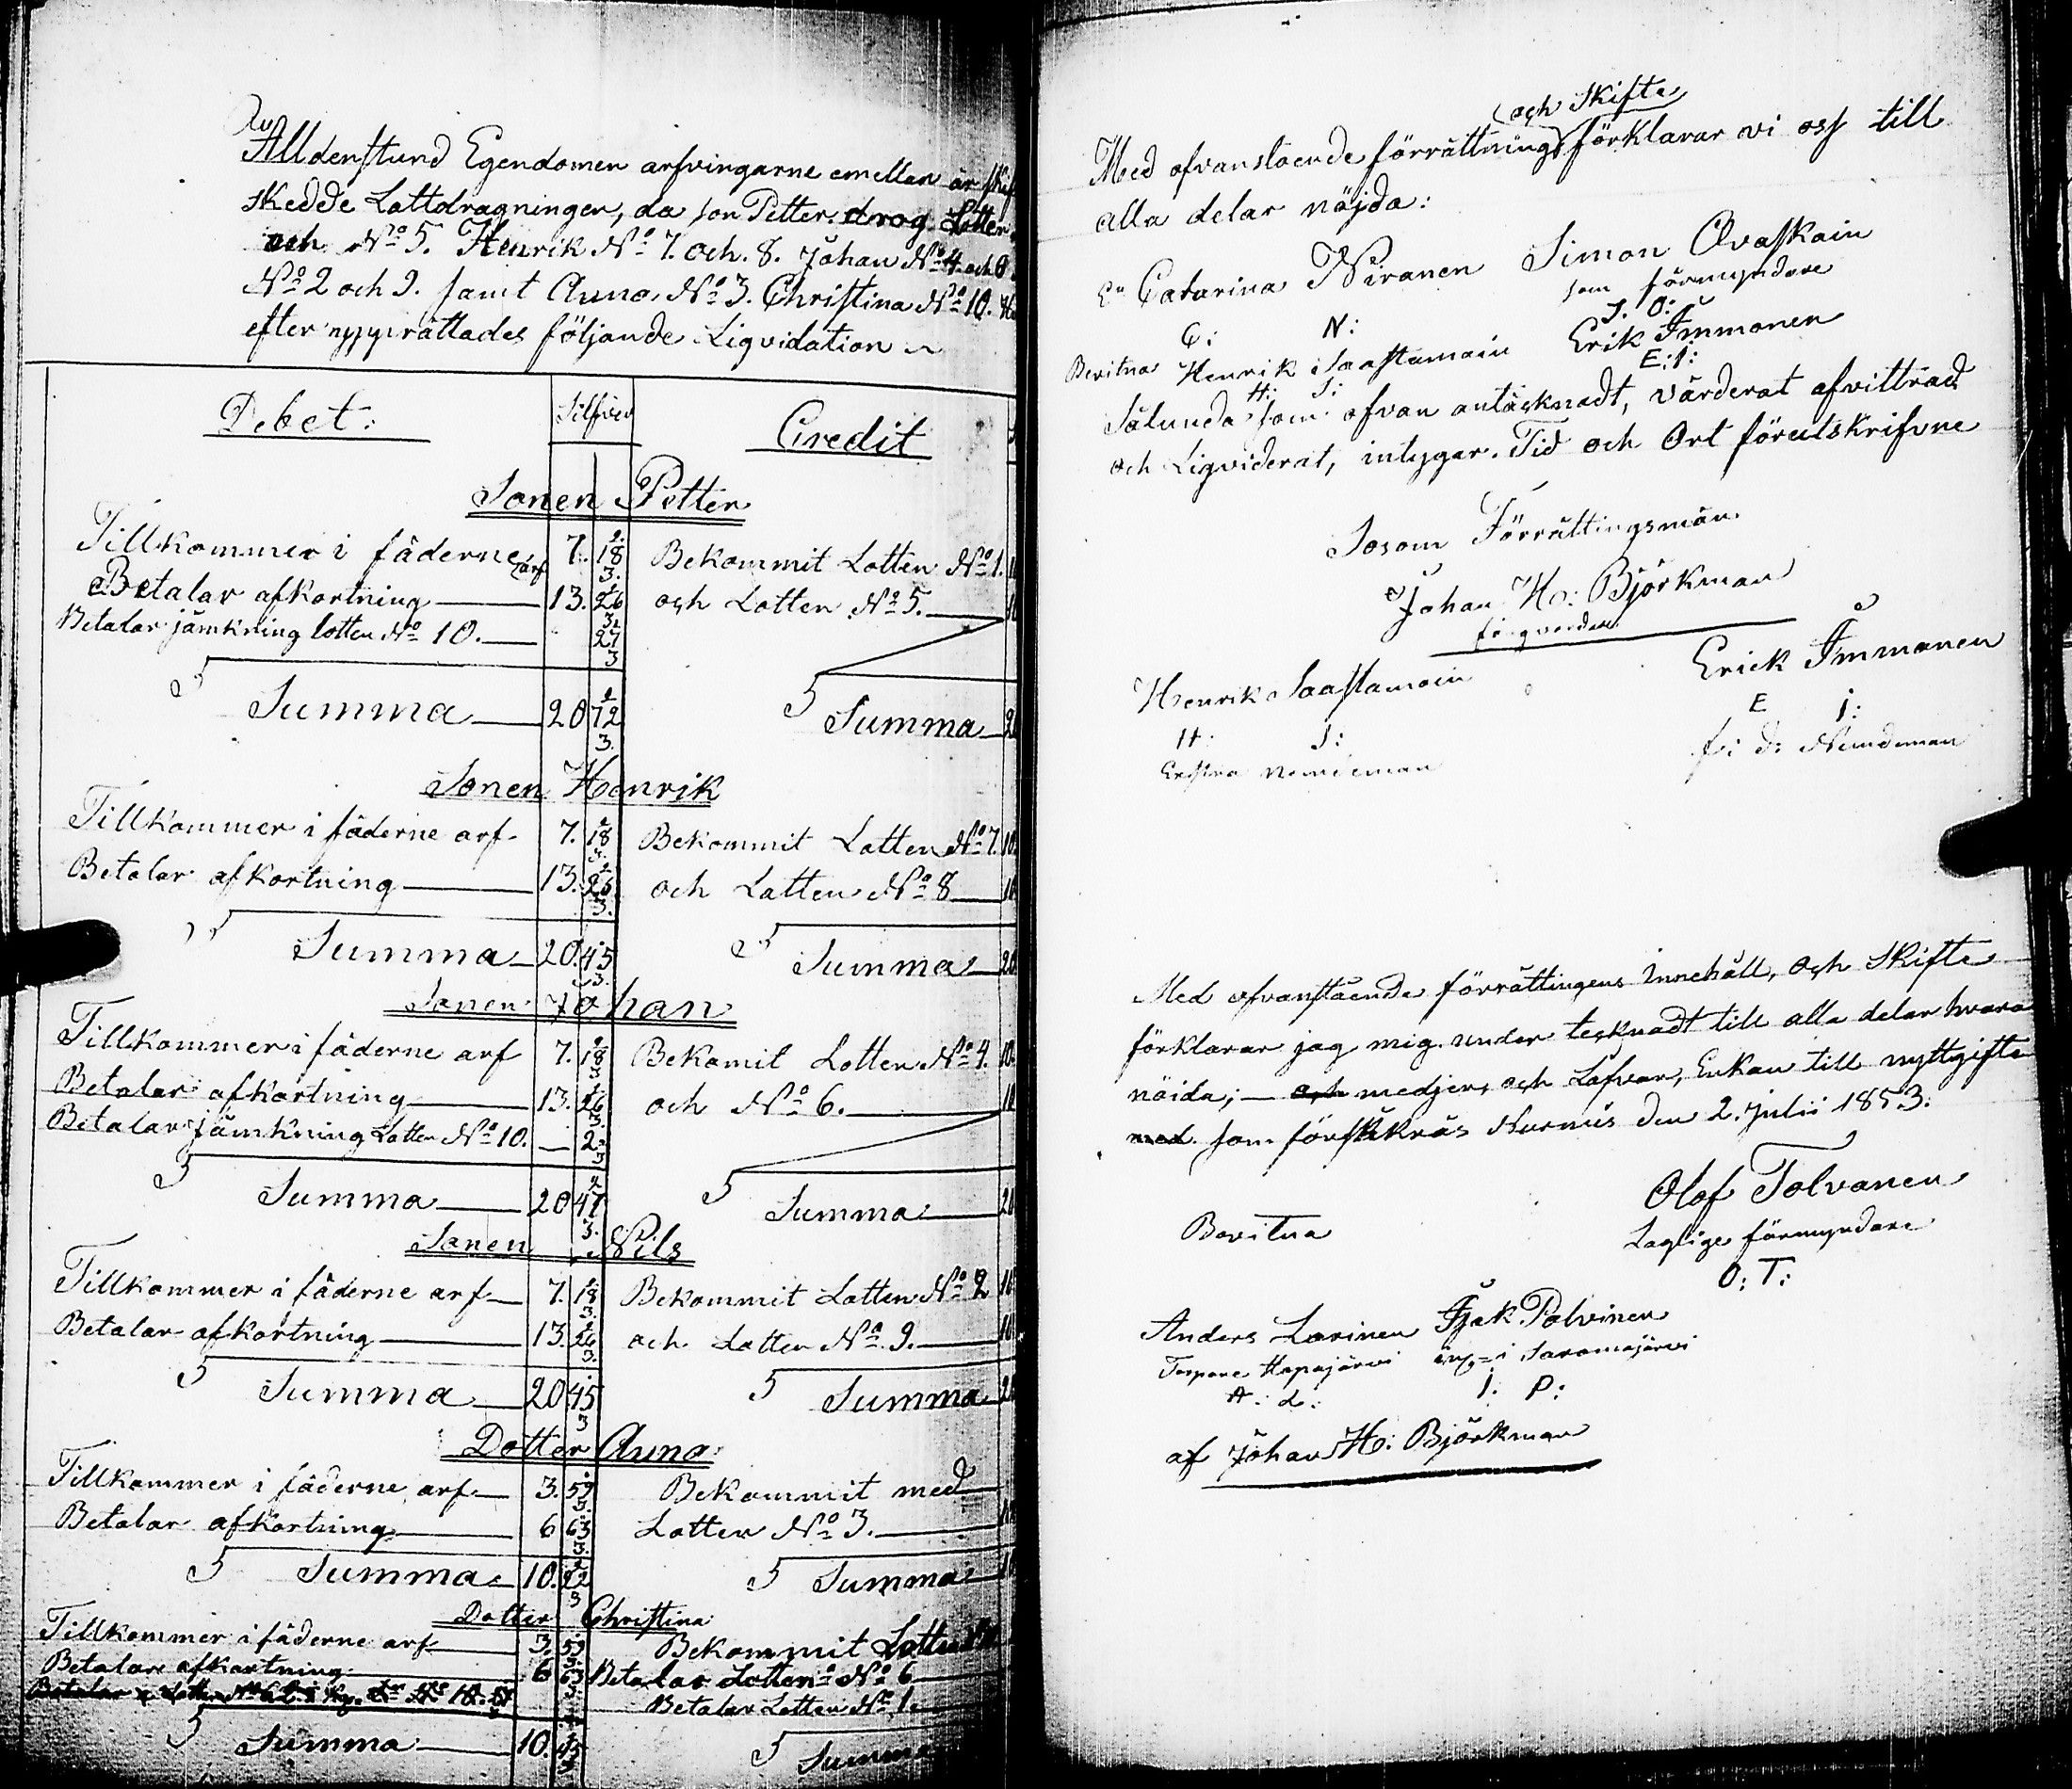 Alldenstund Egendomen arfvingarne emellan är skif
skedde Lottdragningen, då son Petter drog Lotten
och No 5. Henrik No 7. och 8. Johan No 4. och 6
No 2 och 9. samt Anna, No 3. Christina No 10.
efter upprättades följande Liqvidation
Debet:
Silfver
Credit
Sonen Petter
Tillkommer i fäderne arf 7. 18 2/3. Bekommit Lotten No 1.
Betalar afkortning 13. 26 2/3. och Lotten No 5.
Betalar jämkning lotten No 10. 27
Summa 20 72 2/3. Summa 2
Sonen Henrik
Tillkommer i fäderne arf 7. 18 2/3. Bekommit Lotten No 7. 10
Betalar afkortning 13. 26 2/3. och Lotten No 8
Summa 20. 45 Summa 20
Sonen Johan
Tillkommer i fäderne arf 7. 18 2/3 Bekomit Lotten No 4. 10
Betalar afkortning 13. 26 2/3. och No 6.
Betalar jämkning Lotten No 10. — 2
Summa 20 47 Summa 20
Sonen Nils
Tillkommer i fäderne arf 7. 18 2/3. Bekommit Lotten No 2 10
Betalar afkortning 13. 26 2/3. och Lotten No 9. 10
Summa 20 45 Summa 2
Dotter Anna:
Tillkommer i fäderne arf 3. 59 Bekommit med
Betalar afkortning 6 63 Lotten No 3.
Summa 10. 22 2/3 Summa
Dotter Christina
Tillkommer i fäderne arf 3. 59 Bekommit Lotten
Betalare afkortning 6 63 Betalar Lotten No 6
Betalar Lotten No 1.
Summa 10. Summa
och Skifte
Med ofvanstoende förrättning förklarar vi oss till
alla delar nöjda:
En Catarina Niranen Simon Ovaskain
som förmyndare
C: N: S. O:
Bevitna Henrik Saastamoin Erik Immonen
H: S: E: I:
Sålunda som ofvan antäcknadt, värderat afvittrad
och Liqviderat, intygar. Tid och Ort förutskrifvne
Sosom Förrättingsmän
Johan H: Björkman
Henrik Saastamoin Erick Immonen
H: S: E I:
f: d: Nämdeman
Med ofvanstående förrättingens Innehåll, och Skifte
förklarar jag mig under tecknadt till alla delar hvara
nöida; — och medjer, och Lofvar, Enkan till nyttgifte
med som försäkräs Nurmis den 2. Julii 1853.
Olof Tolvanen
Bevitna Laglige förmyndare
O: T:
Anders Larinen Isak Polvinen
Hapajärvi i Saramojärvi
A: L: I: P:
af Johan H: Björkman